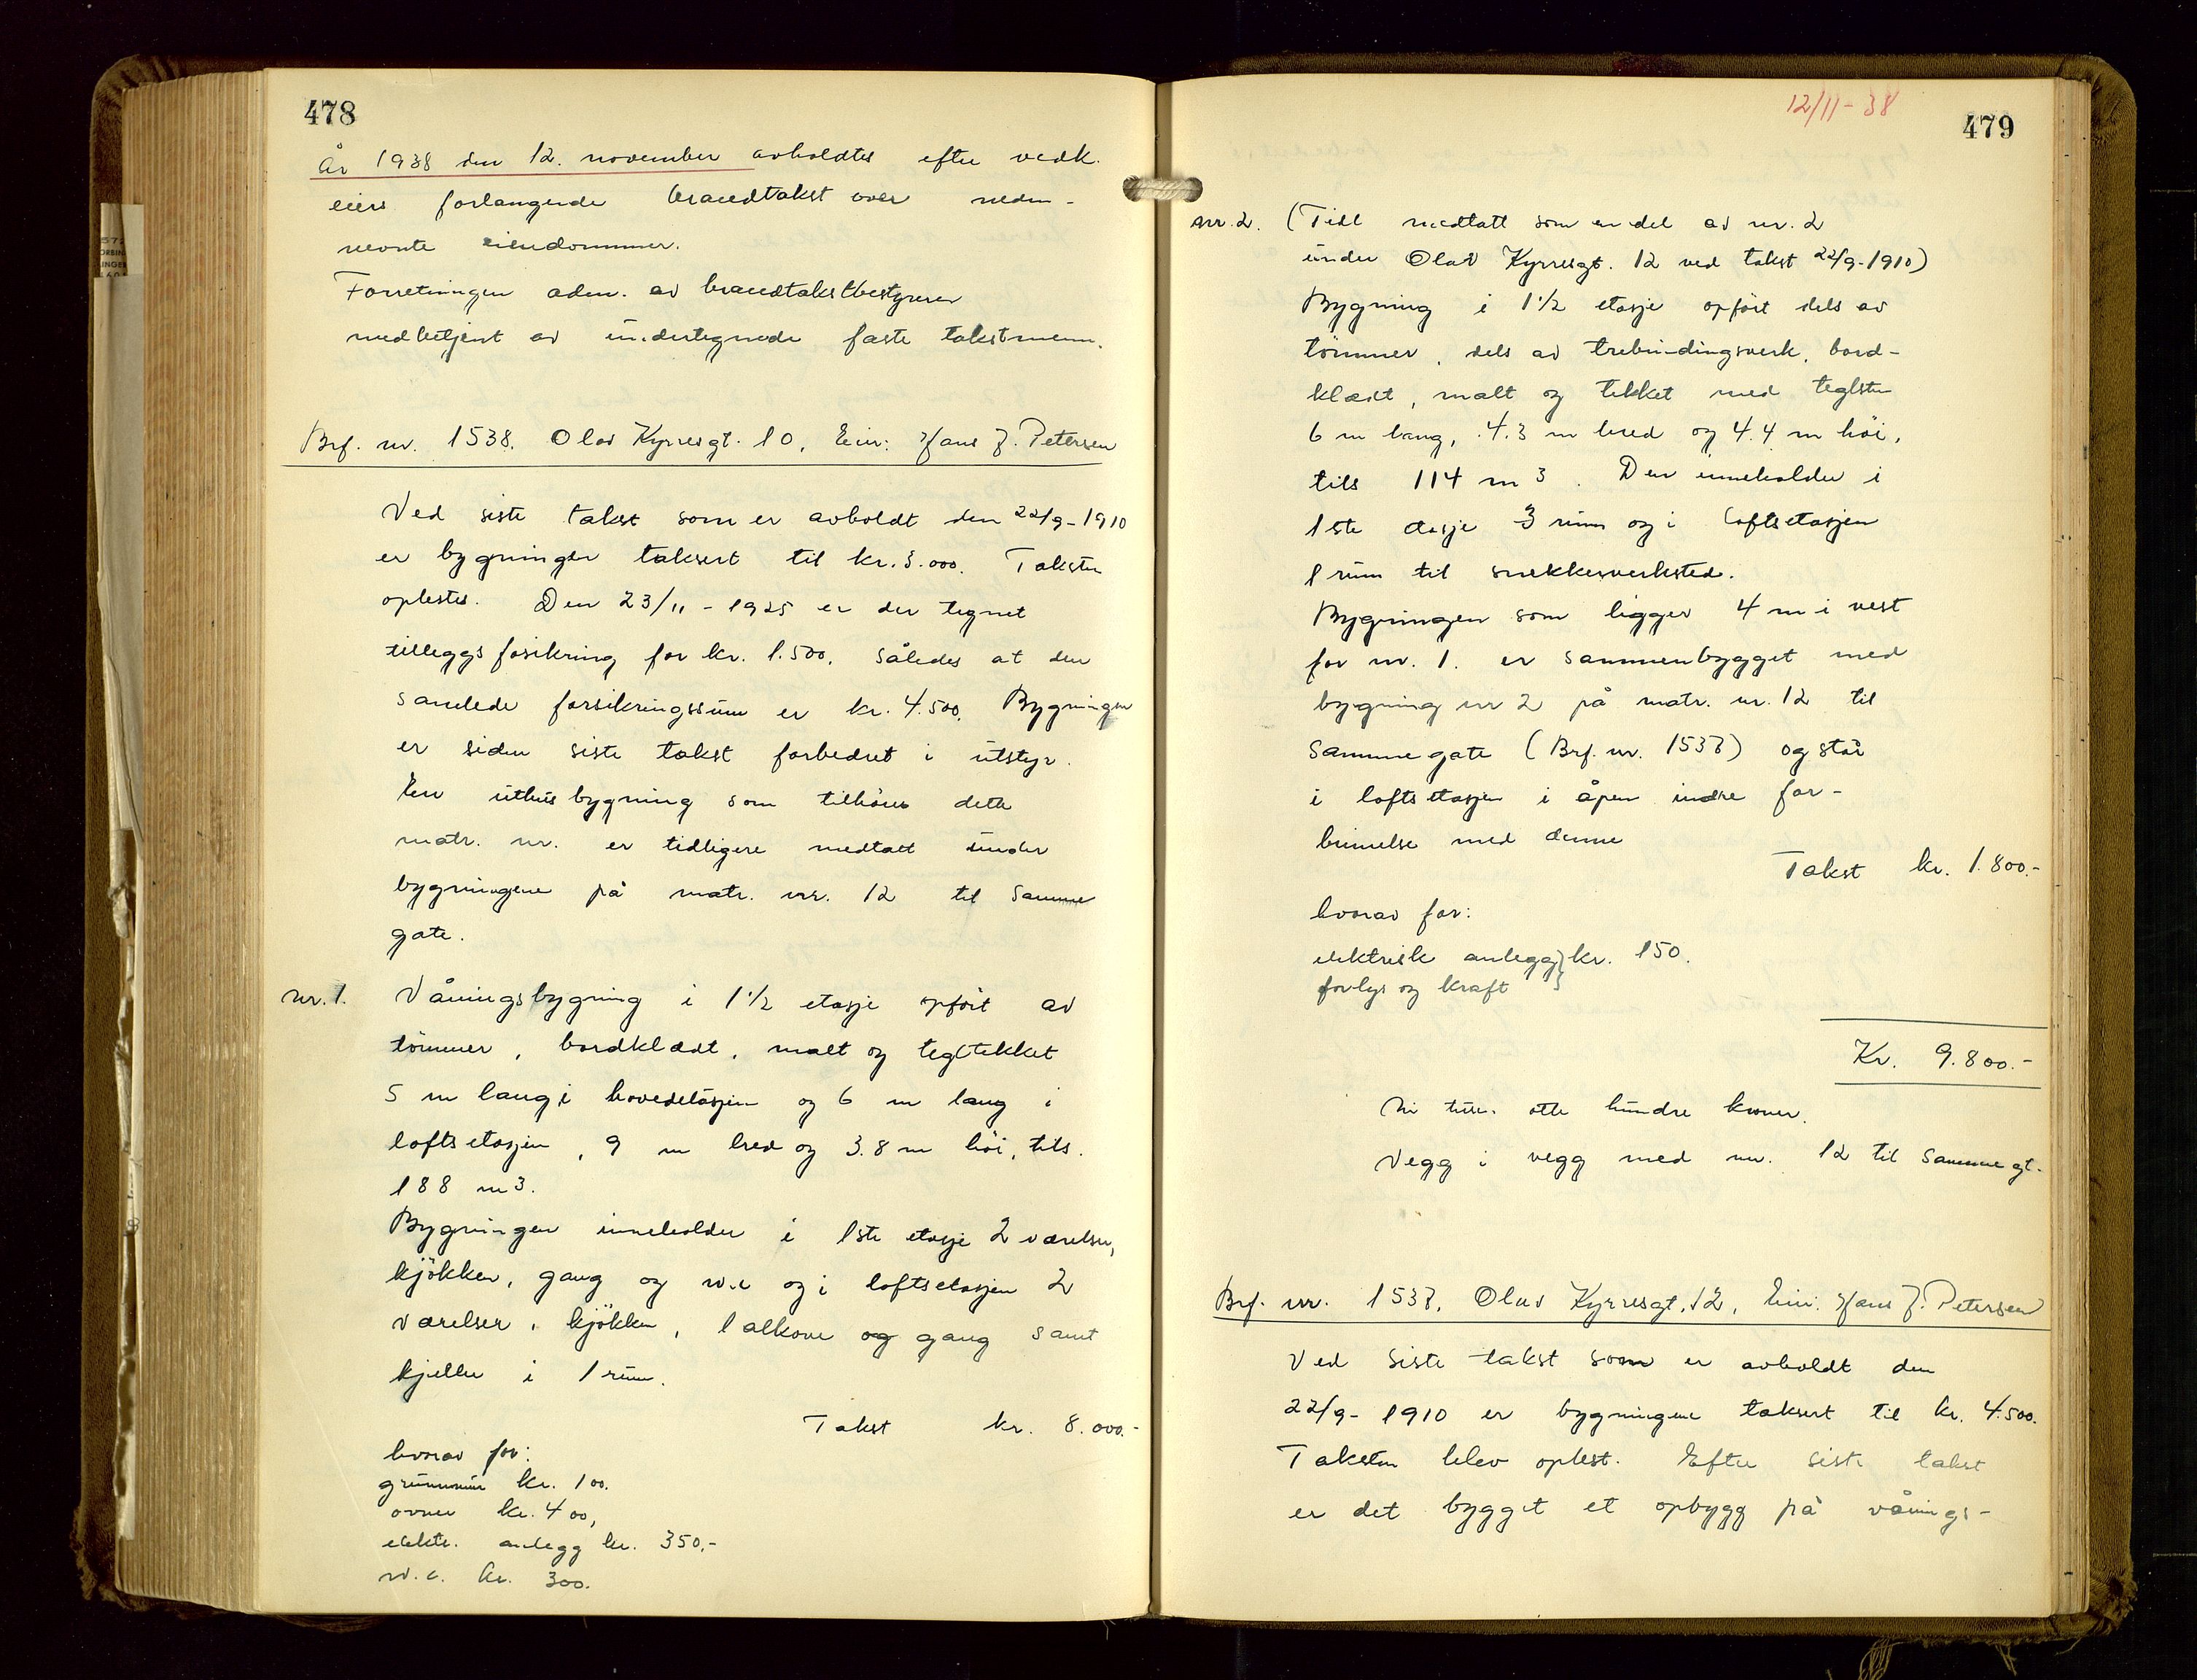 478
År 1938 den 12. november avholdtes efter vedk.
eiers forlangende brandtakst over neden-
nevnte eiendommer.
Forretningen adm. av brandtakstbestyreren
medbetjent av undertegnede faste takstmenn.
Brf. nr. 1538. Olav Kyrresgt. 10, Eier: Hans J. Petersen
Ved siste takst som er avholdt den 22/9-1910
er bygningen taksert til kr. 3.000. Taksten
oplestes. Den 23/11-1925 er der tegnet
tilleggsforsikring for kr. 1.500, således at den
samlede forsikringssum er kr. 4.500. Bygningen
er siden siste takst forbedret i utstyr.
En uthusbygning som tilhører dette
matr. nr. er tidligere medtatt under
bygningene på matr. nr. 12 til samme
gate.
nr. 1. Våningsbygning i 1 1/2 etasje opført av
tømmer, bordklædt, malt og tegltekket
5 m lang i hovedetasjen og 6 m lang i
loftsetasjen, 9 m bred og 3.8 m höi, tils.
188 m3.
Bygningen inneholder i 1ste etasje 2 værelser,
kjökken, gang og w.c og i loftsetasjen 2
værelser, kjökken, 1 alkove og gang samt
kjeller i 1 rum.
Takst kr. 8.000.-
hvorav for:
grunnmur kr. 100.
ovner kr. 400,
elektr. anlegg kr. 350,-
w.c. kr. 300.
12/11-38
479
nr. 2. (Tidl medtatt som en del av nr. 2
under Olav Kyrresgt. 12 ved takst 22/9-1910)
Bygning i 1 1/2 etasje opført dels av
tömmer, dels av trebindingsverk, bord-
klædt, malt og tekket med teglsten
6 m lang, 4.3 m bred og 4.4 m höi,
tils 114 m3. Den inneholder i
1ste etasje 3 rum og i loftsetasjen
1 rum til snekkerverksted.
Bygningen som ligger 4 m i vest
for nr. 1. er sammenbygget med
bygning nr 2 på matr. nr. 12 til
samme gate (Brf. nr. 1537) og står
i loftsetasjen i åpen indre for-
binnelse med denne
Takst kr. 1.800.-
hvorav for:
elektrisk anlegg } kr. 150.
for lys og kraft }
Kr. 9.800.-
Ni tusen otte hundre kroner.
Vegg i vegg med nr. 12 til samme gt.
Brf. nr. 1537. Olav Kyrresgt. 12, Eier: Hans J. Petersen
Ved siste takst som er avholdt den
22/9-1910 er bygningene taksert til kr. 4.500.
Taksten blev oplest. Efter siste takst
er det bygget et opbygg på vånings-